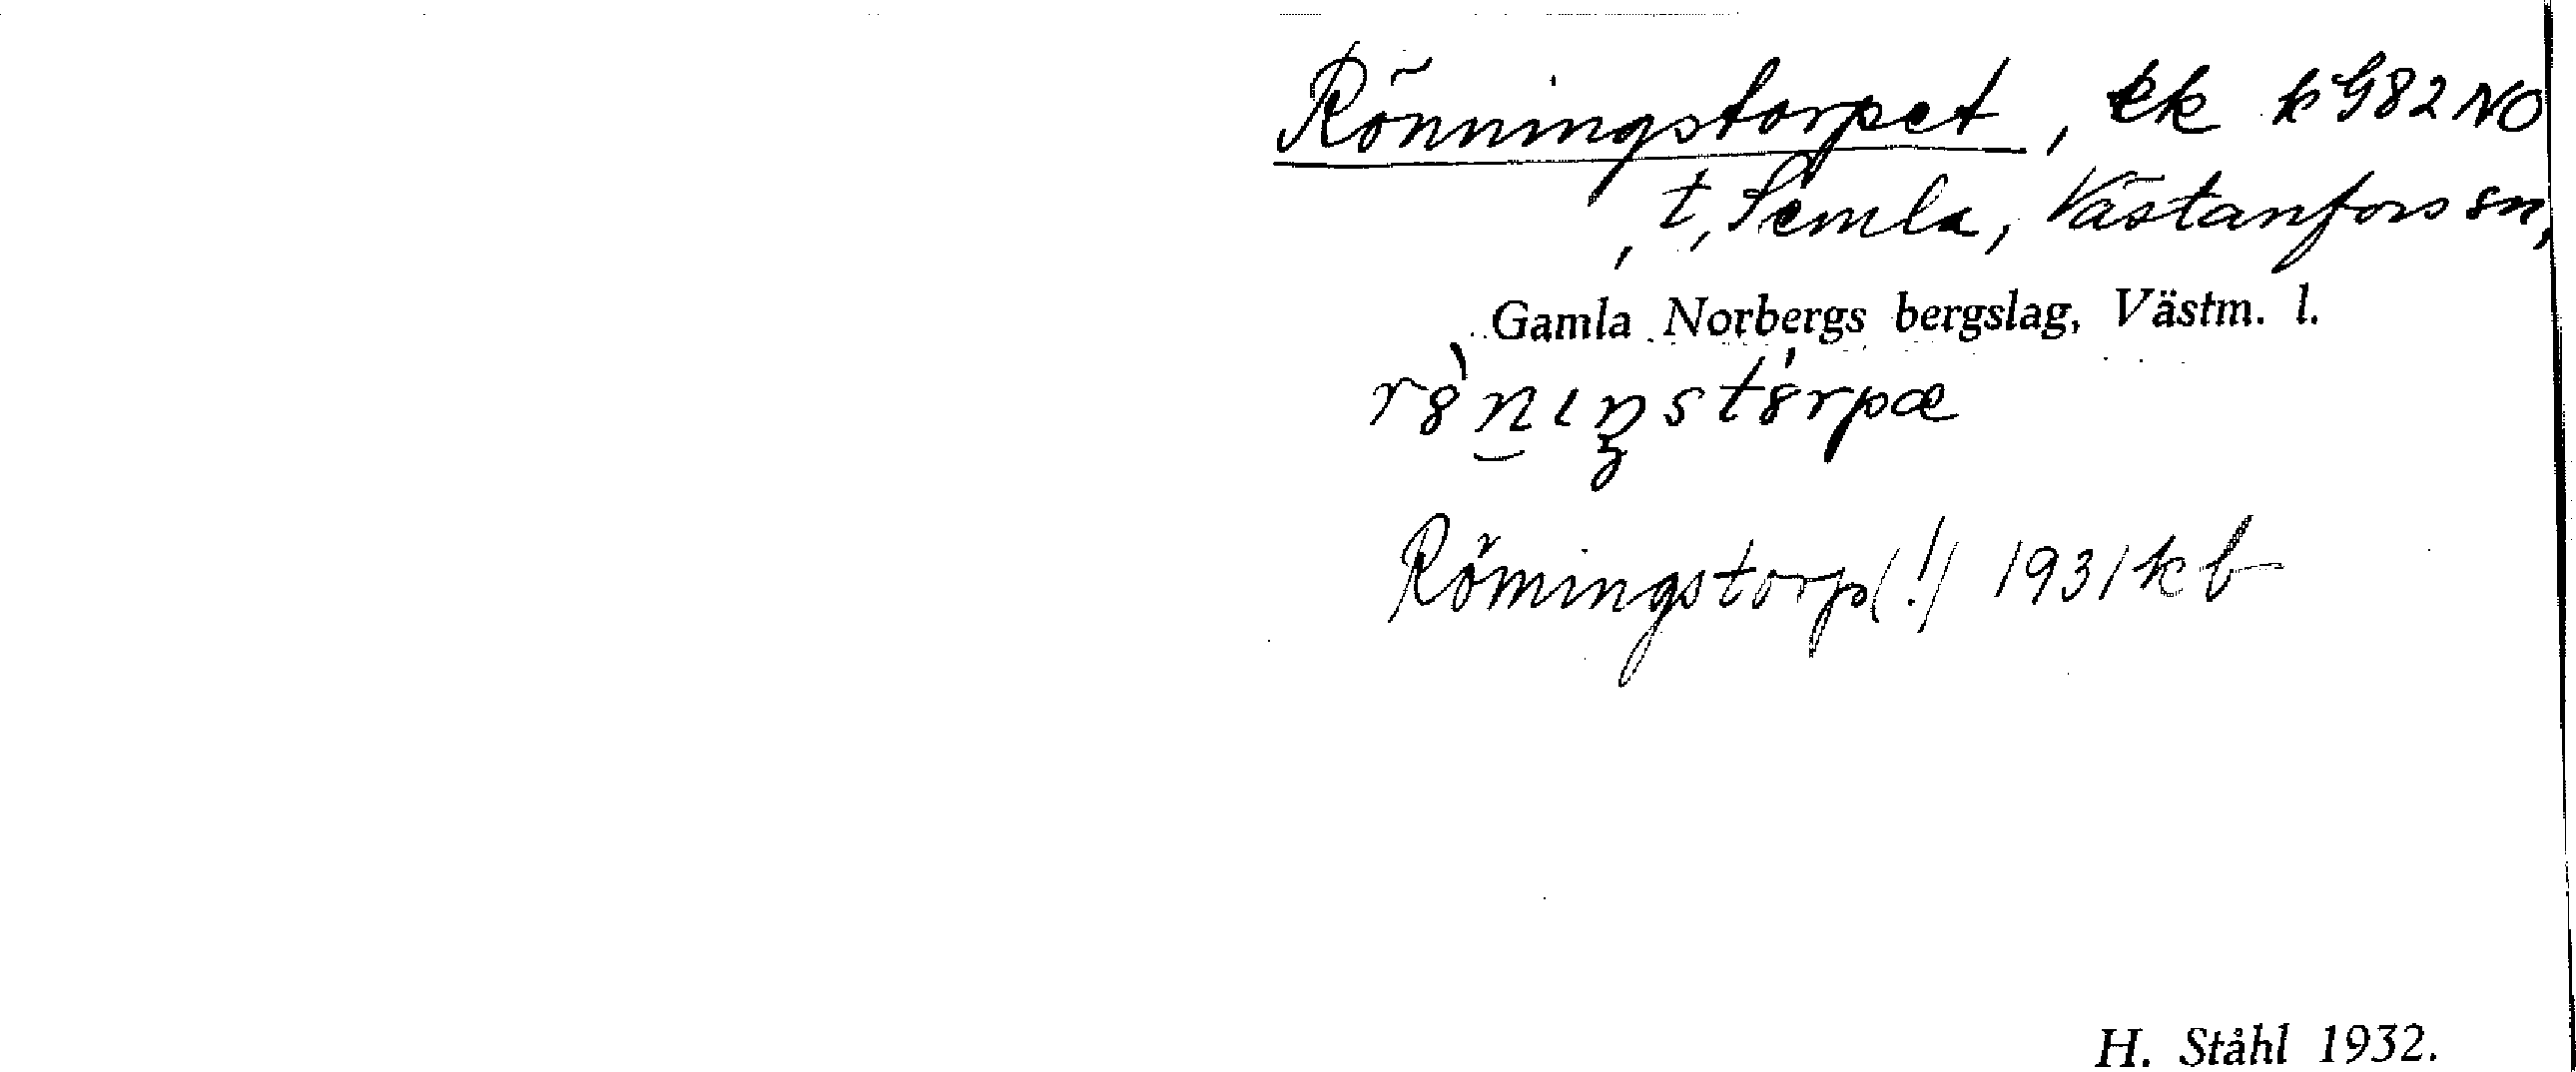 Rönningstorpet, ek k G82 NO
, t, Semla, Västanfors sn,
Gamla Norbergs bergslag, Västm. l.
Römingstorp(!) 1931 kb
H. Ståhl 1932.